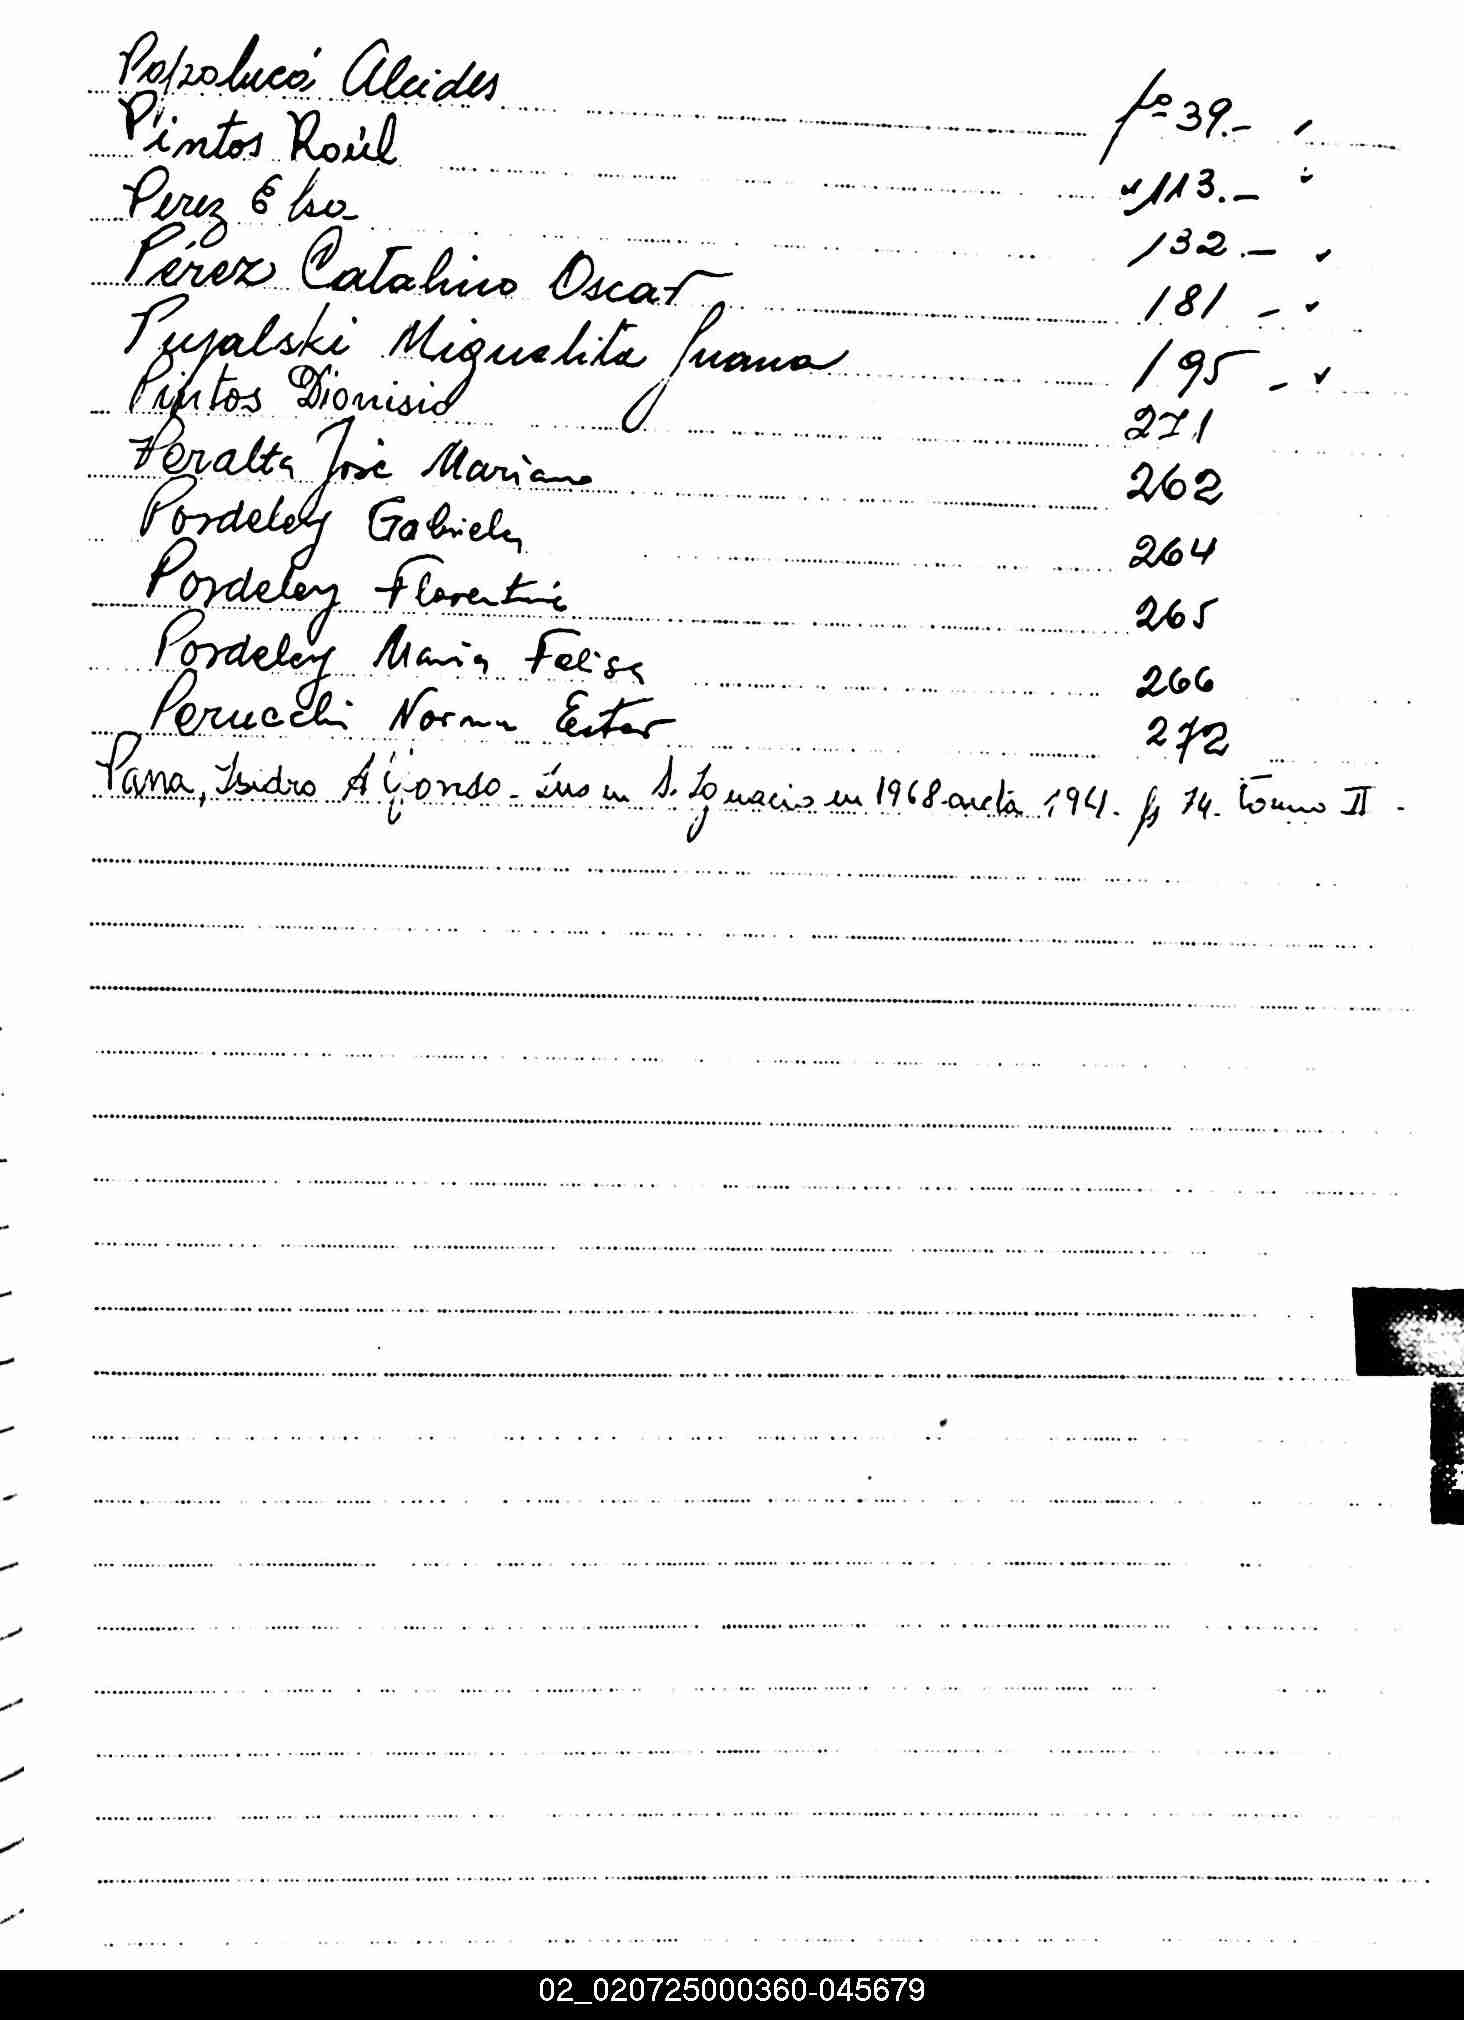 Popolucó Alcides fº 39.-
Pintos Raúl " 113.-
Perez Elsa 132.-
Pérez Catalino Oscar 181 -
Pujalski Miguelita Juana 195 -
Pintos Dionisio 271
Peralta José Mariano 262
Pordeley Gabriela 264
Pordeley Florentino 265
Pordeley Maria Felisa 266
Perucchi Norma Ester 272
Pana, Isidro Alfonso - Ins en S. Ignacio en 1968 - acta 194. fs 74. tomo II -
02_020725000360-045679